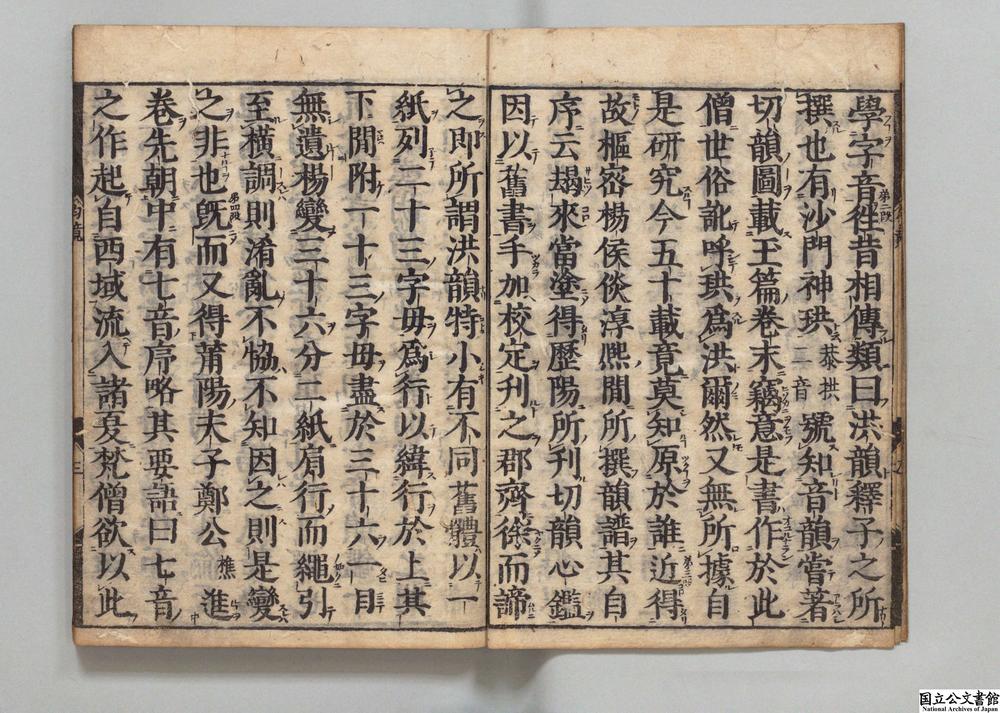 學字音徃昔相傳類曰洪韻釋子之所
撰也有沙門神珙恭拱二音號知音韻嘗著
切韻圖載玉篇卷末竊意是書作於此
僧世俗訛呼珙爲洪爾然又無所據自
是研究今五十載竟莫知原於誰近得
故樞密楊侯倓淳熈間所撰韻譜其自
序云朅來當塗得歷陽所刊切韻心鑑
因以舊書手加校定刊之郡齊徐而諦
之即所謂洪韻特小有不同舊體以一
紙列二十三字母爲行以緯行於上其
下間附一十三字母盡於三十六一目
無遺楊變三十六分二紙肩行而繩引
至橫調則淆亂不恊不知因之則是變
之非也旣而又得莆陽夫子鄭公樵進
卷先朝中有七音序略其要語曰七音
之作起自西域流入諸夏梵僧欲以此
第二段
第四段
國立公文書館
National Archives of Japan